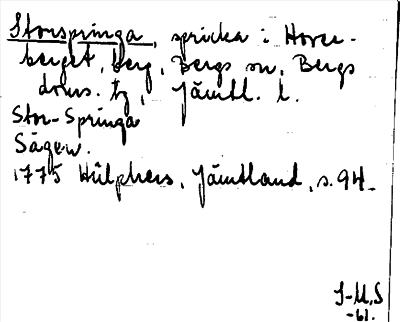 Storspringa, spricka i Hover-
berget, berg, Bergs sn, Bergs
doms. tg, Jämtl. l.
Stor-Springa
Sägen.
1775 Hülphers, Jämtland, s. 94.
I-M.S
-61.